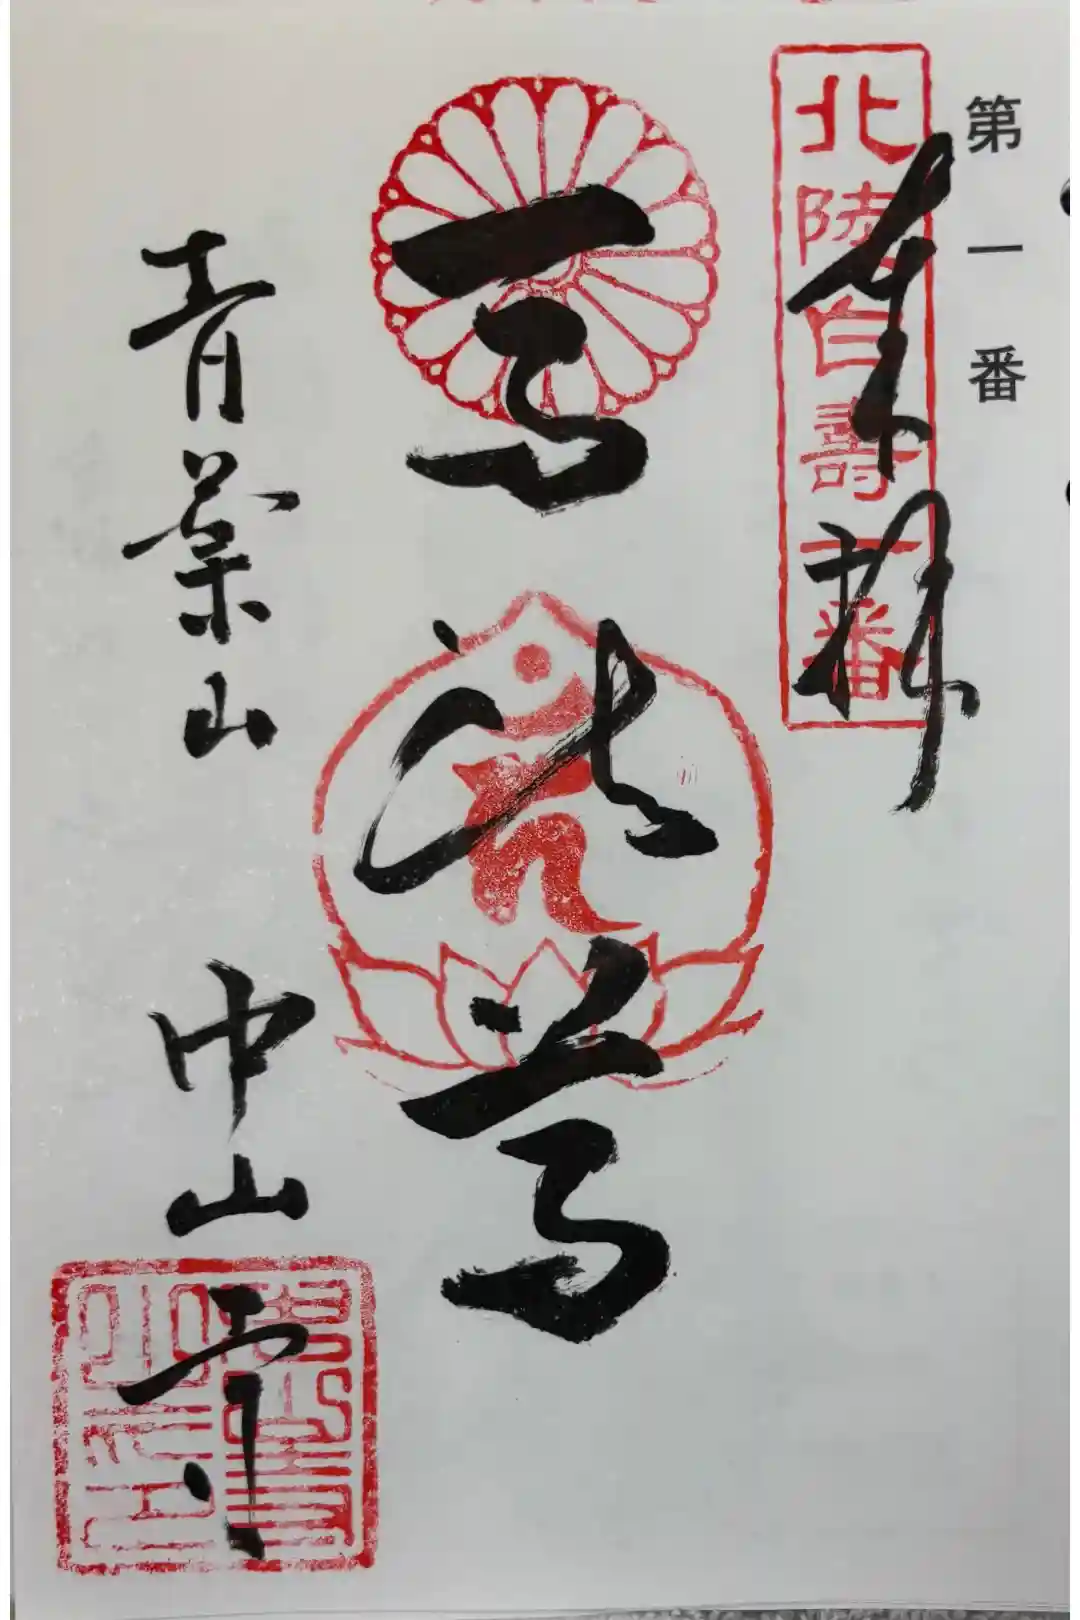 第一番
北陸白壽一番
奉拝
馬頭尊
青葉山 中山寺